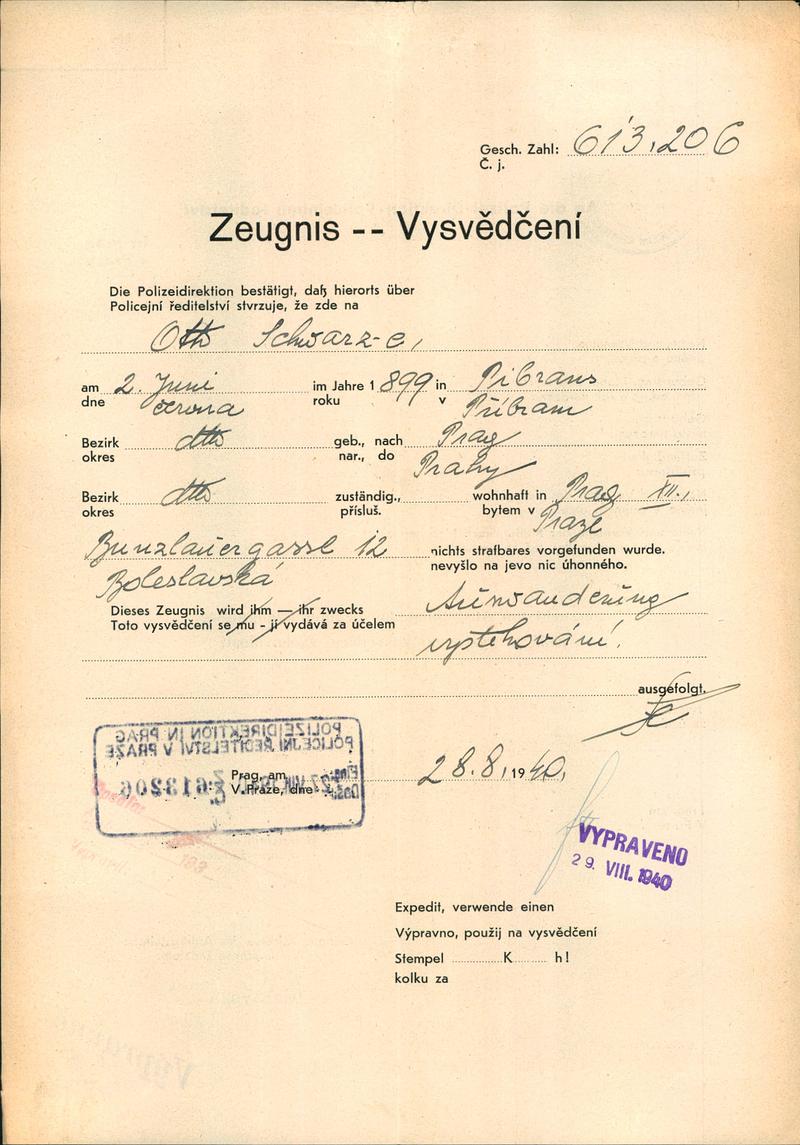 Gesch. Zahl: 613.206
Č. j.
Zeugnis -- Vysvědčení
Die Polizeidirektion bestätigt, daß hierorts über
Policejní ředitelství stvrzuje, že zde na
Otto Schwarz-e,
am 2. Juni im Jahre 1 899 in Pibrans
dne června roku v Příbram
Bezirk dtto geb., nach Prag
okres nar., do Prahy
Bezirk dtto zuständig., wohnhaft in Prag XII.,
okres přísluš. bytem v Praze
Bunzlauergasse 12 nichts strafbares vorgefunden wurde.
Boleslavská nevyšlo na jevo nic úhonného.
Dieses Zeugnis wird ihm — ihr zwecks Auswanderung
Toto vysvědčení se mu - jí vydává za účelem vystěhování.
ausgefolgt.
POLIZEIDIREKTION IN PRAG
POLICEJNÍ ŘEDITELSTVÍ V PRAZE
Prag, am 28.8.1940.
V Praze, dne
613206
VYPRAVENO
29. VIII. 1940
Expedit, verwende einen
Výpravno, použij na vysvědčení
Stempel K h!
kolku za